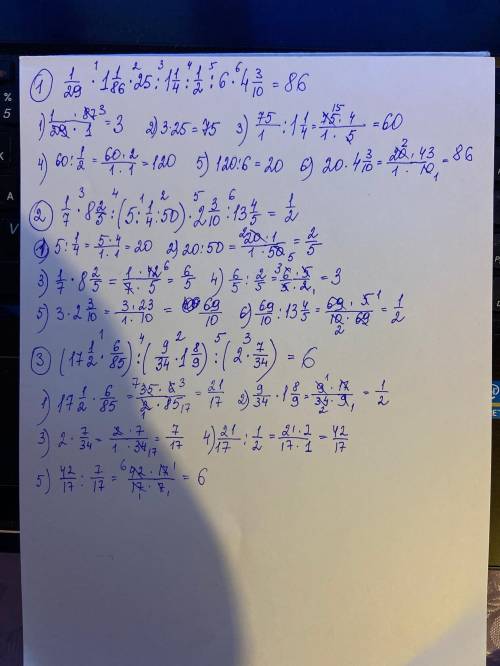 ① 1/29 · 1 1/86 · 25 : 1 1/4 : 1/2 : 6 · 4 3/10 = 86
1) 1 · 87/29 · 1 = 3 2) 3·25 = 75 3) 75/1 : 1 1/4 = 75 · 4/1 · 5 = 60
4) 60 : 1/2 = 60 · 2/1 · 1 = 120 5) 120 : 6 = 20 6) 20 · 4 3/10 = 20 · 43/1 · 10 = 86
② 1/7 · 8 2/5 : (5 : 1/4 : 50) · 2 3/10 : 13 4/5 = 1/2
1) 5 : 1/4 = 5 · 4/1 · 1 = 20 2) 20 : 50 = 20 · 1/1 · 50 = 2/5
3) 1/7 · 8 2/5 = 1 · 42/7 · 5 = 6/5 4) 6/5 : 2/5 = 6 · 5/5 · 2 = 3
5) 3 · 2 3/10 = 3 · 23/1 · 10 = 69/10 6) 69/10 : 13 4/5 = 69 · 5/10 · 69 = 1/2
③ (17 1/2 · 6/85) : (9/34 · 1 8/9) : (2 · 7/34) = 6
1) 17 1/2 · 6/85 = 35 · 6/2 · 85 = 21/17 2) 9/34 · 1 8/9 = 9 · 17/34 · 9 = 1/2
3) 2 · 7/34 = 2 · 7/1 · 34 = 7/17 4) 21/17 : 1/2 = 21 · 2/17 · 1 = 42/17
5) 42/17 : 7/17 = 42 · 17/17 · 7 = 6